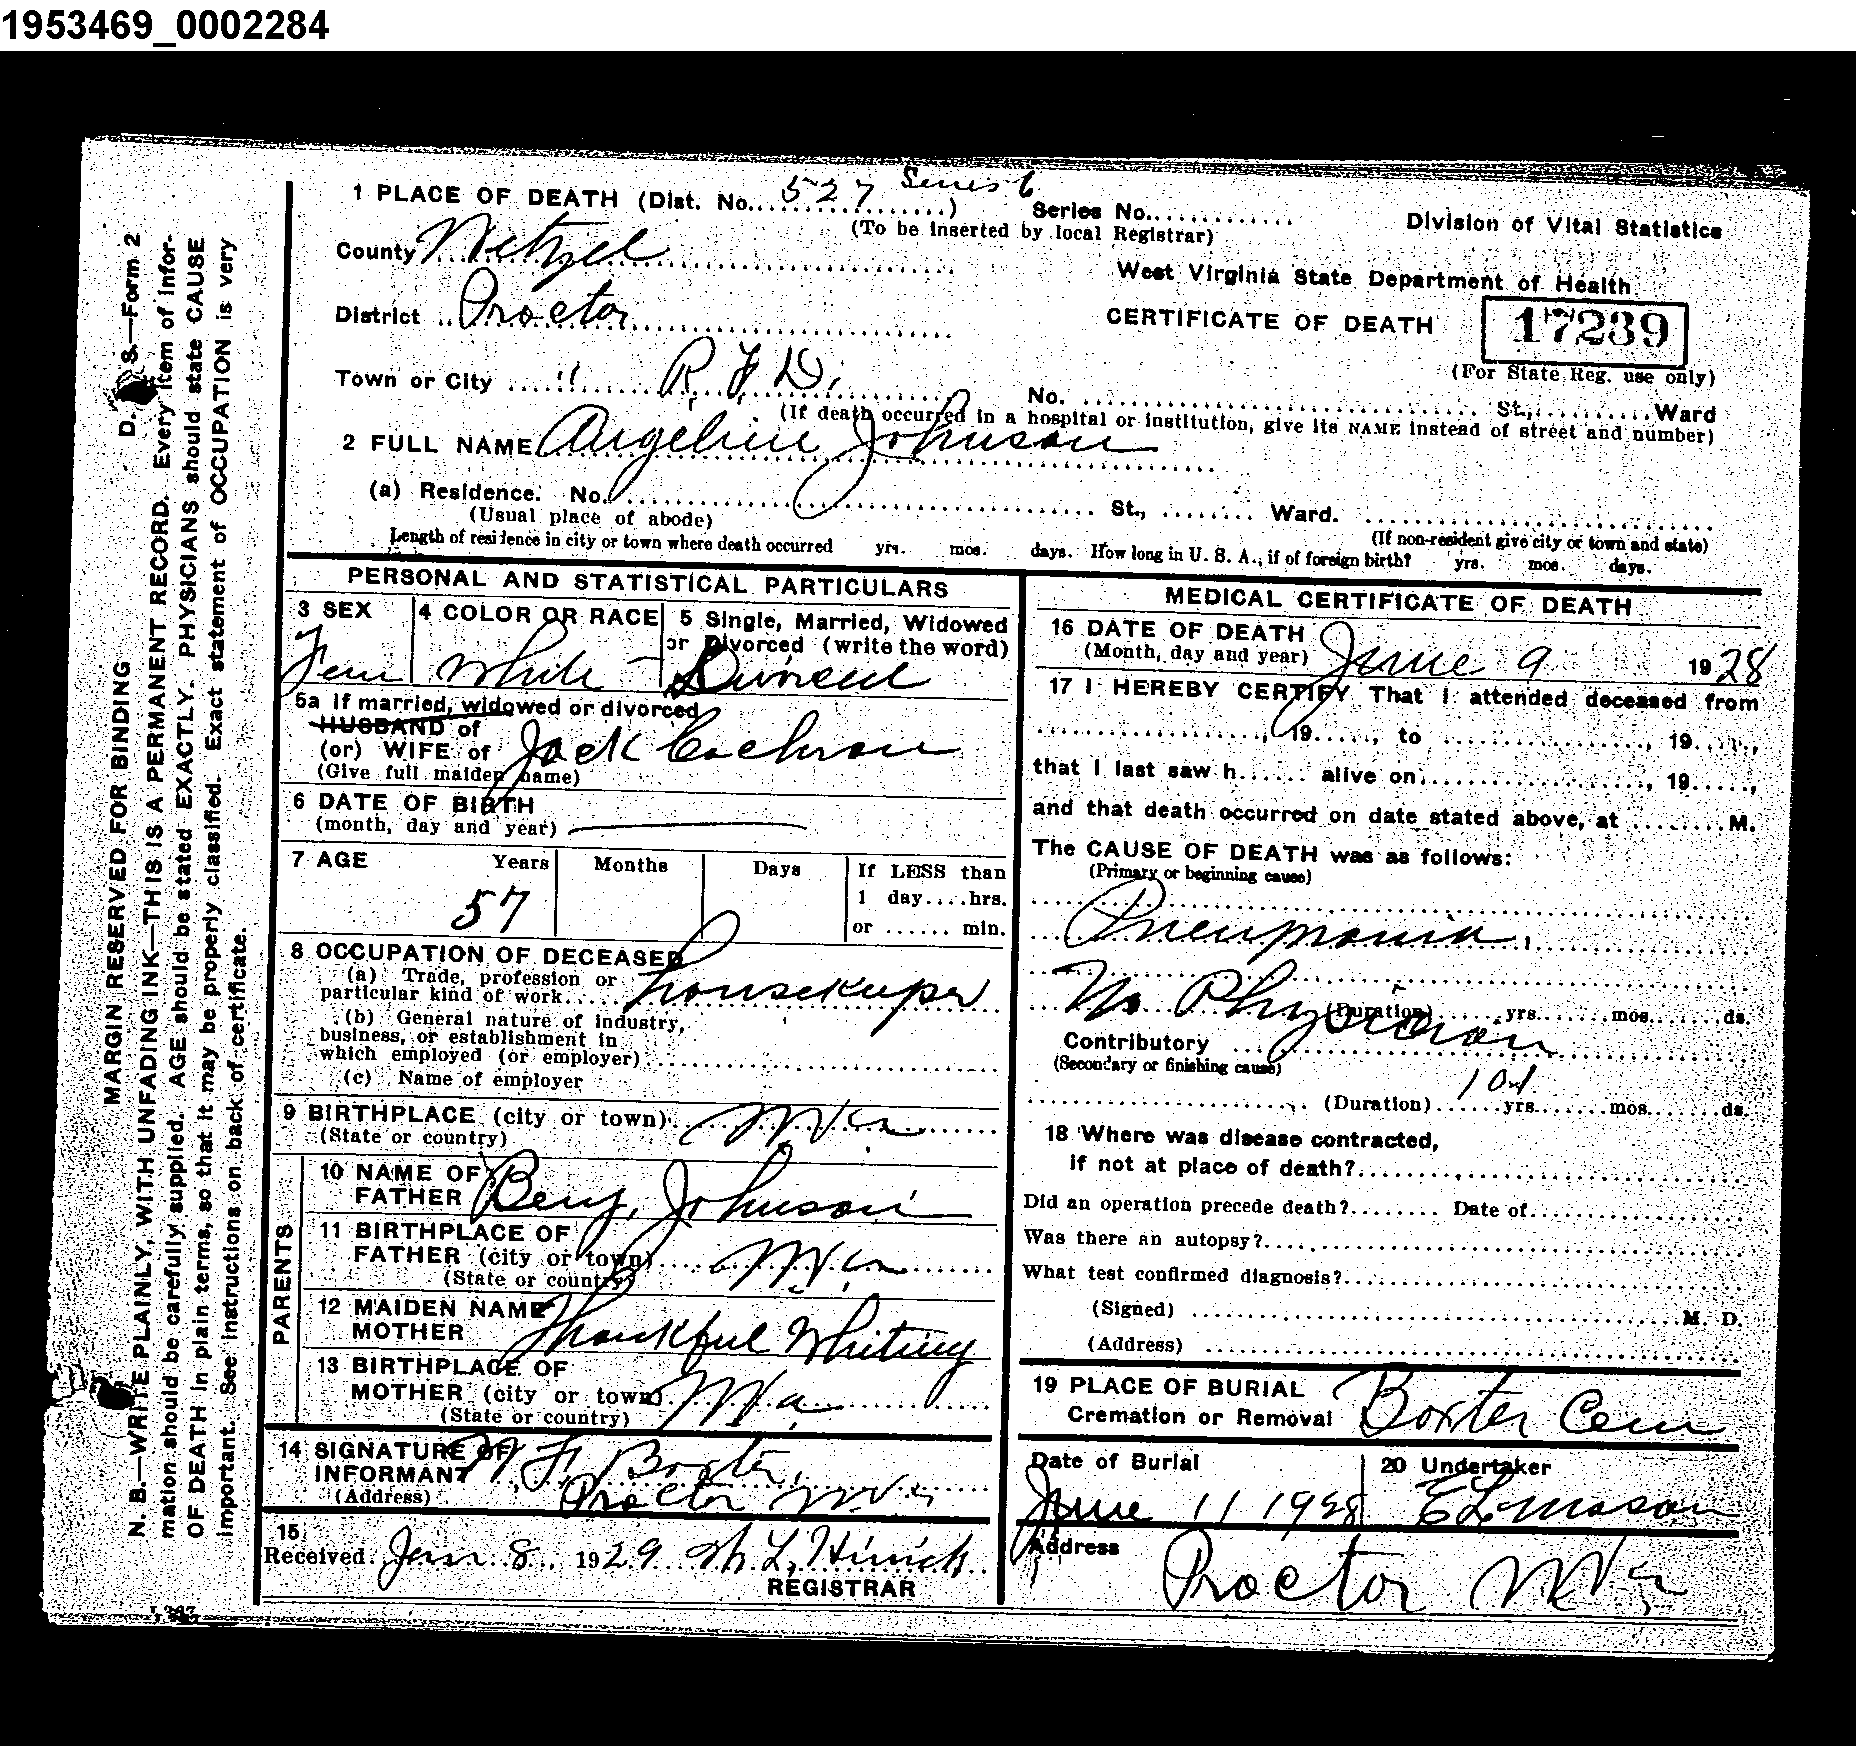 1953469_0002284
1 PLACE OF DEATH (Dist. No. 527 Series 6) Series No.
(To be inserted by local Registrar)
Division of Vital Statistics
County Wetzel
West Virginia State Department of Health
District Proctor
CERTIFICATE OF DEATH
17239
(For State Reg. use only)
Town or City " R.F.D.
No. St., Ward
(If death occurred in a hospital or institution, give its NAME instead of street and number)
2 FULL NAME Angeline Johnson
(a) Residence. No. St., Ward.
(Usual place of abode)
(If non-resident give city or town and state)
Length of residence in city or town where death occurred yrs. mos. days. How long in U. S. A., if of foreign birth? yrs. mos. days.
PERSONAL AND STATISTICAL PARTICULARS
3 SEX
Fem
4 COLOR OR RACE
White
5 Single, Married, Widowed
or Divorced (write the word)
5a If married, widowed or divorced
HUSBAND of
(or) WIFE of Jack Cochran
(Give full maiden name)
6 DATE OF BIRTH
(month, day and year)
7 AGE Years Months Days
57
If LESS than
1 day....hrs.
or ...... min.
8 OCCUPATION OF DECEASED
(a) Trade, profession or
particular kind of work housekeeper
(b) General nature of industry,
business, or establishment in
which employed (or employer)
(c) Name of employer
9 BIRTHPLACE (city or town) W Va
(State or country)
PARENTS
10 NAME OF
FATHER Benj. Johnson
11 BIRTHPLACE OF
FATHER (city or town) W Va
(State or country)
12 MAIDEN NAME
MOTHER Thankful Whiting
13 BIRTHPLACE OF
MOTHER (city or town) W Va
(State or country)
14 SIGNATURE OF
INFORMANT F. Boxter
(Address) Proctor W Va
15
Received Jan 8 1929
REGISTRAR
MEDICAL CERTIFICATE OF DEATH
16 DATE OF DEATH
(Month, day and year) June 9 1928
17 I HEREBY CERTIFY That I attended deceased from
, 19....., to , 19.....,
that I last saw h...... alive on , 19.....,
and that death occurred on date stated above, at ........M.
The CAUSE OF DEATH was as follows:
(Primary or beginning cause)
Pneumonia
No Physician
(Duration) yrs. mos. ds.
Contributory
(Secondary or finishing cause)
(Duration) yrs. mos. ds.
18 Where was disease contracted,
if not at place of death?
Did an operation precede death? Date of
Was there an autopsy?
What test confirmed diagnosis?
(Signed) M. D.
(Address)
19 PLACE OF BURIAL
Cremation or Removal Boxter Cem
Date of Burial
June 11 1928
20 Undertaker
E L Mason
Address
Proctor W Va
D. S.—Form 2
MARGIN RESERVED FOR BINDING
N. B.—WRITE PLAINLY, WITH UNFADING INK—THIS IS A PERMANENT RECORD. Every item of infor-
mation should be carefully supplied. AGE should be stated EXACTLY. PHYSICIANS should state CAUSE
OF DEATH in plain terms, so that it may be properly classified. Exact statement of OCCUPATION is very
important. See instructions on back of certificate.